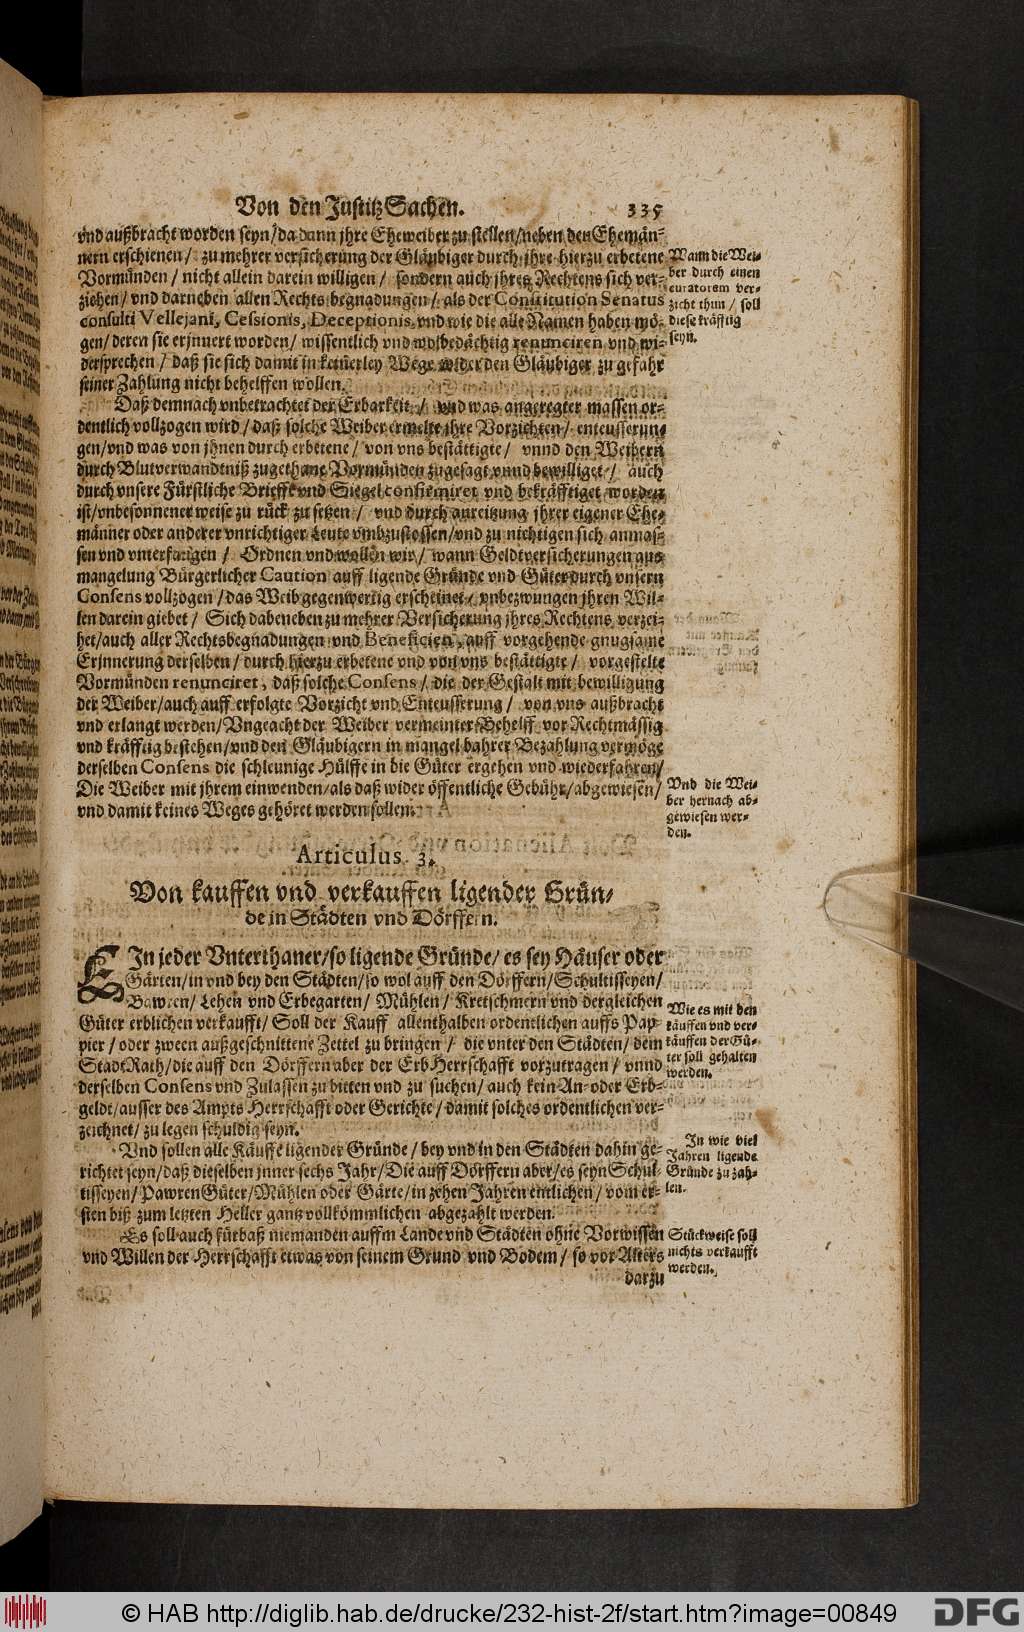 Von den Justitz Sachen. 335
vnd außbracht worden seyn/ da dann jhre Eheweiber zu stellen/ neben den Ehemän-
nern erschienen/ zu mehrer versicherung der Gläubiger durch jhre hierzu erbetene
Vormünden/ nicht allein darein willigen/ sondern auch jhres Rechtens sich ver-
ziehen/ vnd darneben allen Rechts begnadungen/ als der Constitution Senatus
consulti Vellejani, Cessionis, Deceptionis, vnd wie die alle Namen haben mö-
gen/ deren sie erjnnert worden/ wissentlich vnd wolbedächtig renunciren vnd wi-
dersprechen/ daß sie sich damit in keinerley Wege wider den Gläubiger zu gefahr
seiner Zahlung nicht behelffen wollen.
Wann die Wei-
ber durch einen
curatorem ver-
zicht thun/ soll
diese kräfftig
seyn.
Daß demnach vnbetrachtet der Erbarkeit/ vnd was angeregter massen or-
dentlich vollzogen wird/ daß solche Weiber ermelte jhre Vorzichten/ enteusserun-
gen/ vnd was von jhnen durch erbetene/ von vns bestättigte/ vnnd den Weibern
durch Blutverwandtniß zugethane Vormünden zugesagt vnnd bewilliget/ auch
durch vnsere Fürstliche Brieffe vnd Siegel confirmiret vnd bekräfftiget worden
ist/ vnbesonnener weise zu rück zu setzen/ vnd durch anreitzung jhrer eigener Ehe-
männer oder anderer vnrichtiger Leute vmbzustossen/ vnd zu nichtigen sich anmas-
sen vnd vnterfangen/ Ordnen vnd wollen wir/ wann Geldtversicherungen aus
mangelung Bürgerlicher Caution auff ligende Gründe vnd Güter durch vnsern
Consens vollzogen/ das Weib gegenwertig erscheinet/ vnbezwungen jhren Wil-
len darein giebet/ Sich dabeneben zu mehrer Versicherung jhres Rechtens verzei-
het/ auch aller Rechtsbegnadungen vnd Beneficien, auff vorgehende gnugsame
Erjnnerung derselben/ durch hierzu erbetene vnd von vns bestättigte/ vorgestelte
Vormünden renunciret, daß solche Consens/ die der Gestalt mit bewilligung
der Weiber/ auch auff erfolgte Vorzicht vnd Enteusserung/ von vns außbracht
vnd erlangt werden/ Vngeacht der Weiber vermeinter Behelff vor Rechtmässig
vnd kräfftig bestehen/ vnd den Gläubigern in mangel bahrer Bezahlung vermöge
derselben Consens die schleunige Hülffe in die Güter ergehen vnd wiederfahren/
Die Weiber mit jhrem einwenden/ als daß wider öffentliche Gebühr/ abgewiesen/
vnd damit keines Weges gehöret werden sollen.
Vnd die Wei-
ber hernach ab-
gewiesen wer-
den.
Articulus 3.
Von kauffen vnd verkauffen ligender Grün-
de in Städten vnd Dörffern.
EIn jeder Vnterthaner/ so ligende Gründe/ es sey Häuser oder
Gärten/ in vnd bey den Städten/ so wol auff den Dörffern/ Schultisseyen/
Bawren/ Lehen vnd Erbegarten/ Mühlen/ Kretschmern vnd dergleichen
Güter erblichen verkaufft/ Soll der Kauff allenthalben ordentlichen auffs Pap-
pier/ oder zween außgeschnittene Zettel zu bringen/ die vnter den Städten/ dem
StadtRath/ die auff den Dörffern aber der ErbHerrschafft vorzutragen/ vnnd
derselben Consens vnd Zulassen zu bitten vnd zu suchen/ auch kein An- oder Erb-
geldt/ ausser des Ampts Herrschafft oder Gerichte/ damit solches ordentlichen ver-
zeichnet/ zu legen schuldig seyn.
Wie es mit den
käuffen vnd ver-
käuffen der Gü-
ter soll gehalten
werden.
Vnd sollen alle Käuffe ligender Gründe/ bey vnd in den Städten dahin ge-
richtet seyn/ daß dieselben jnner sechs Jahr/ Die auff Dörffern aber/ es seyn Schul-
tisseyen/ PawrenGüter/ Mühlen oder Gärte/ in zehen Jahren entlichen/ vom er-
sten biß zum letzten Heller gantz vollkömmlichen abgezahlt werden.
In wie viel
Jahren ligende
Gründe zu zah-
len.
Es soll auch fürbaß niemanden auffm Lande vnd Städten ohne Vorwissen
vnd Willen der Herrschafft etwas von seinem Grund vnd Bodem/ so vor Alters
darzu
Stückweise soll
nichts verkaufft
werden.
© HAB http://diglib.hab.de/drucke/232-hist-2f/start.htm?image=00849
DFG